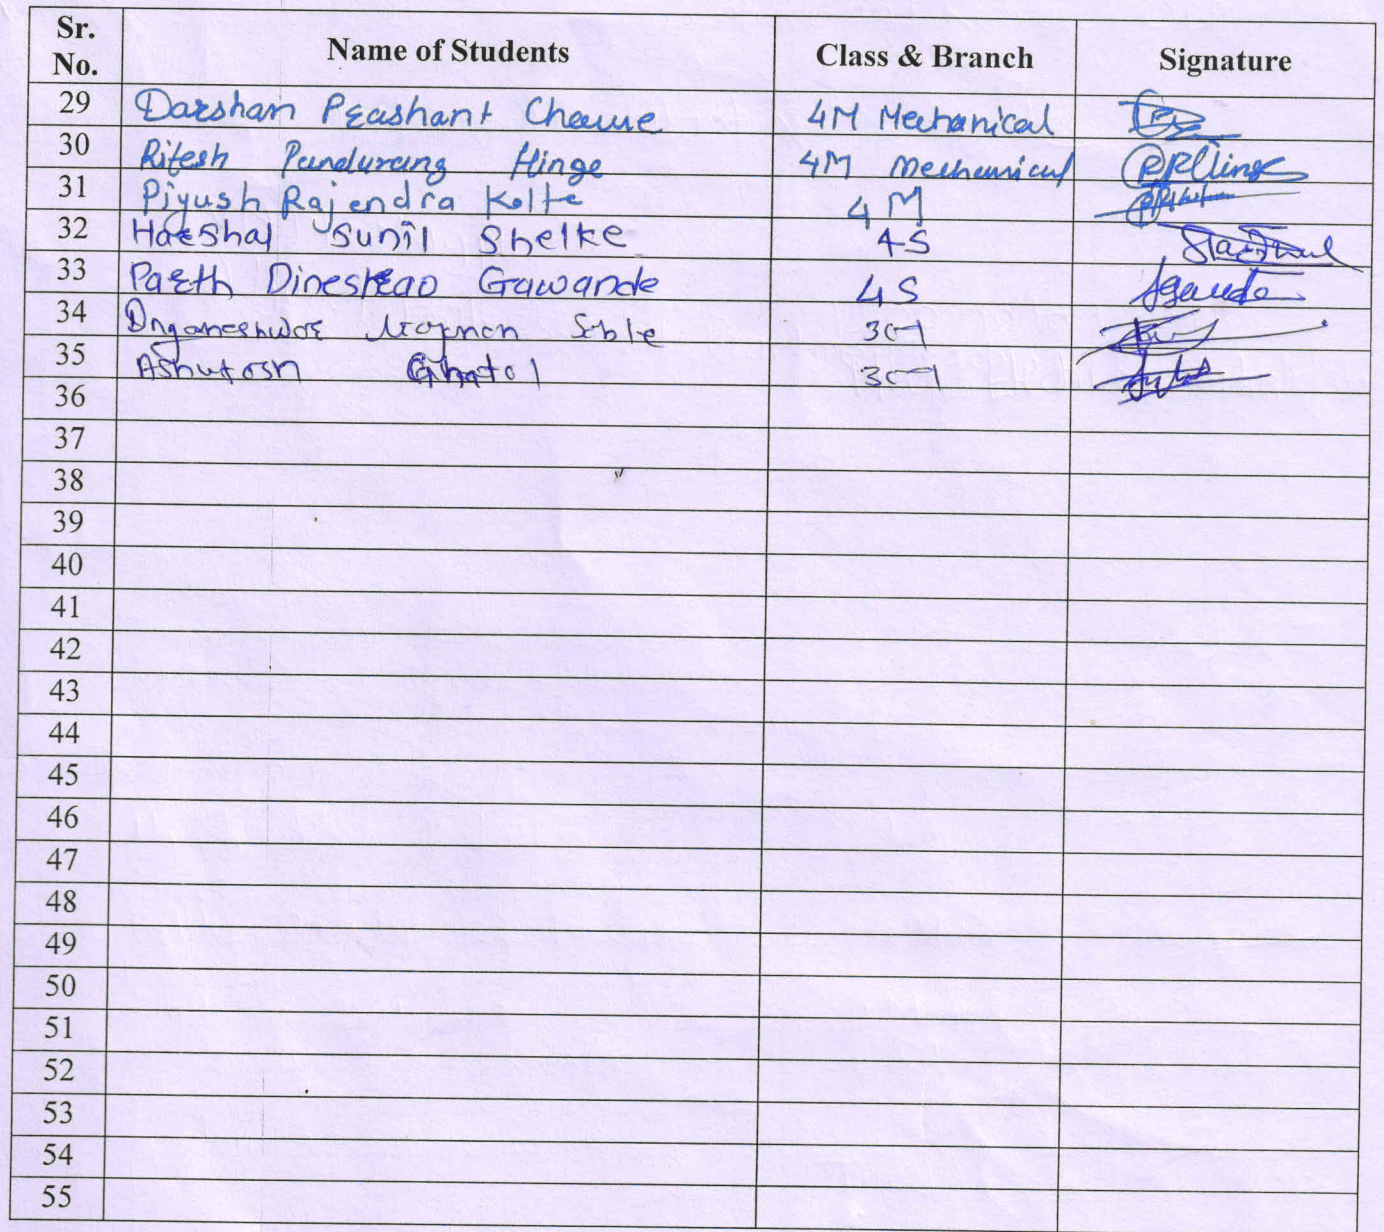 Sr. No. Name of Students Class & Branch Signature
29 Darshan Prashant Chaure 4M Mechanical
30 Ritesh Pandurang Hinge 4M Mechanical
31 Piyush Rajendra Kolte 4M
32 Harshal Sunil Shelke 4S
33 Parth Dineshrao Gawande 4S
34 Dnyaneshwar Sable
35 Ashutosh Ghatol
36
37
38
39
40
41
42
43
44
45
46
47
48
49
50
51
52
53
54
55